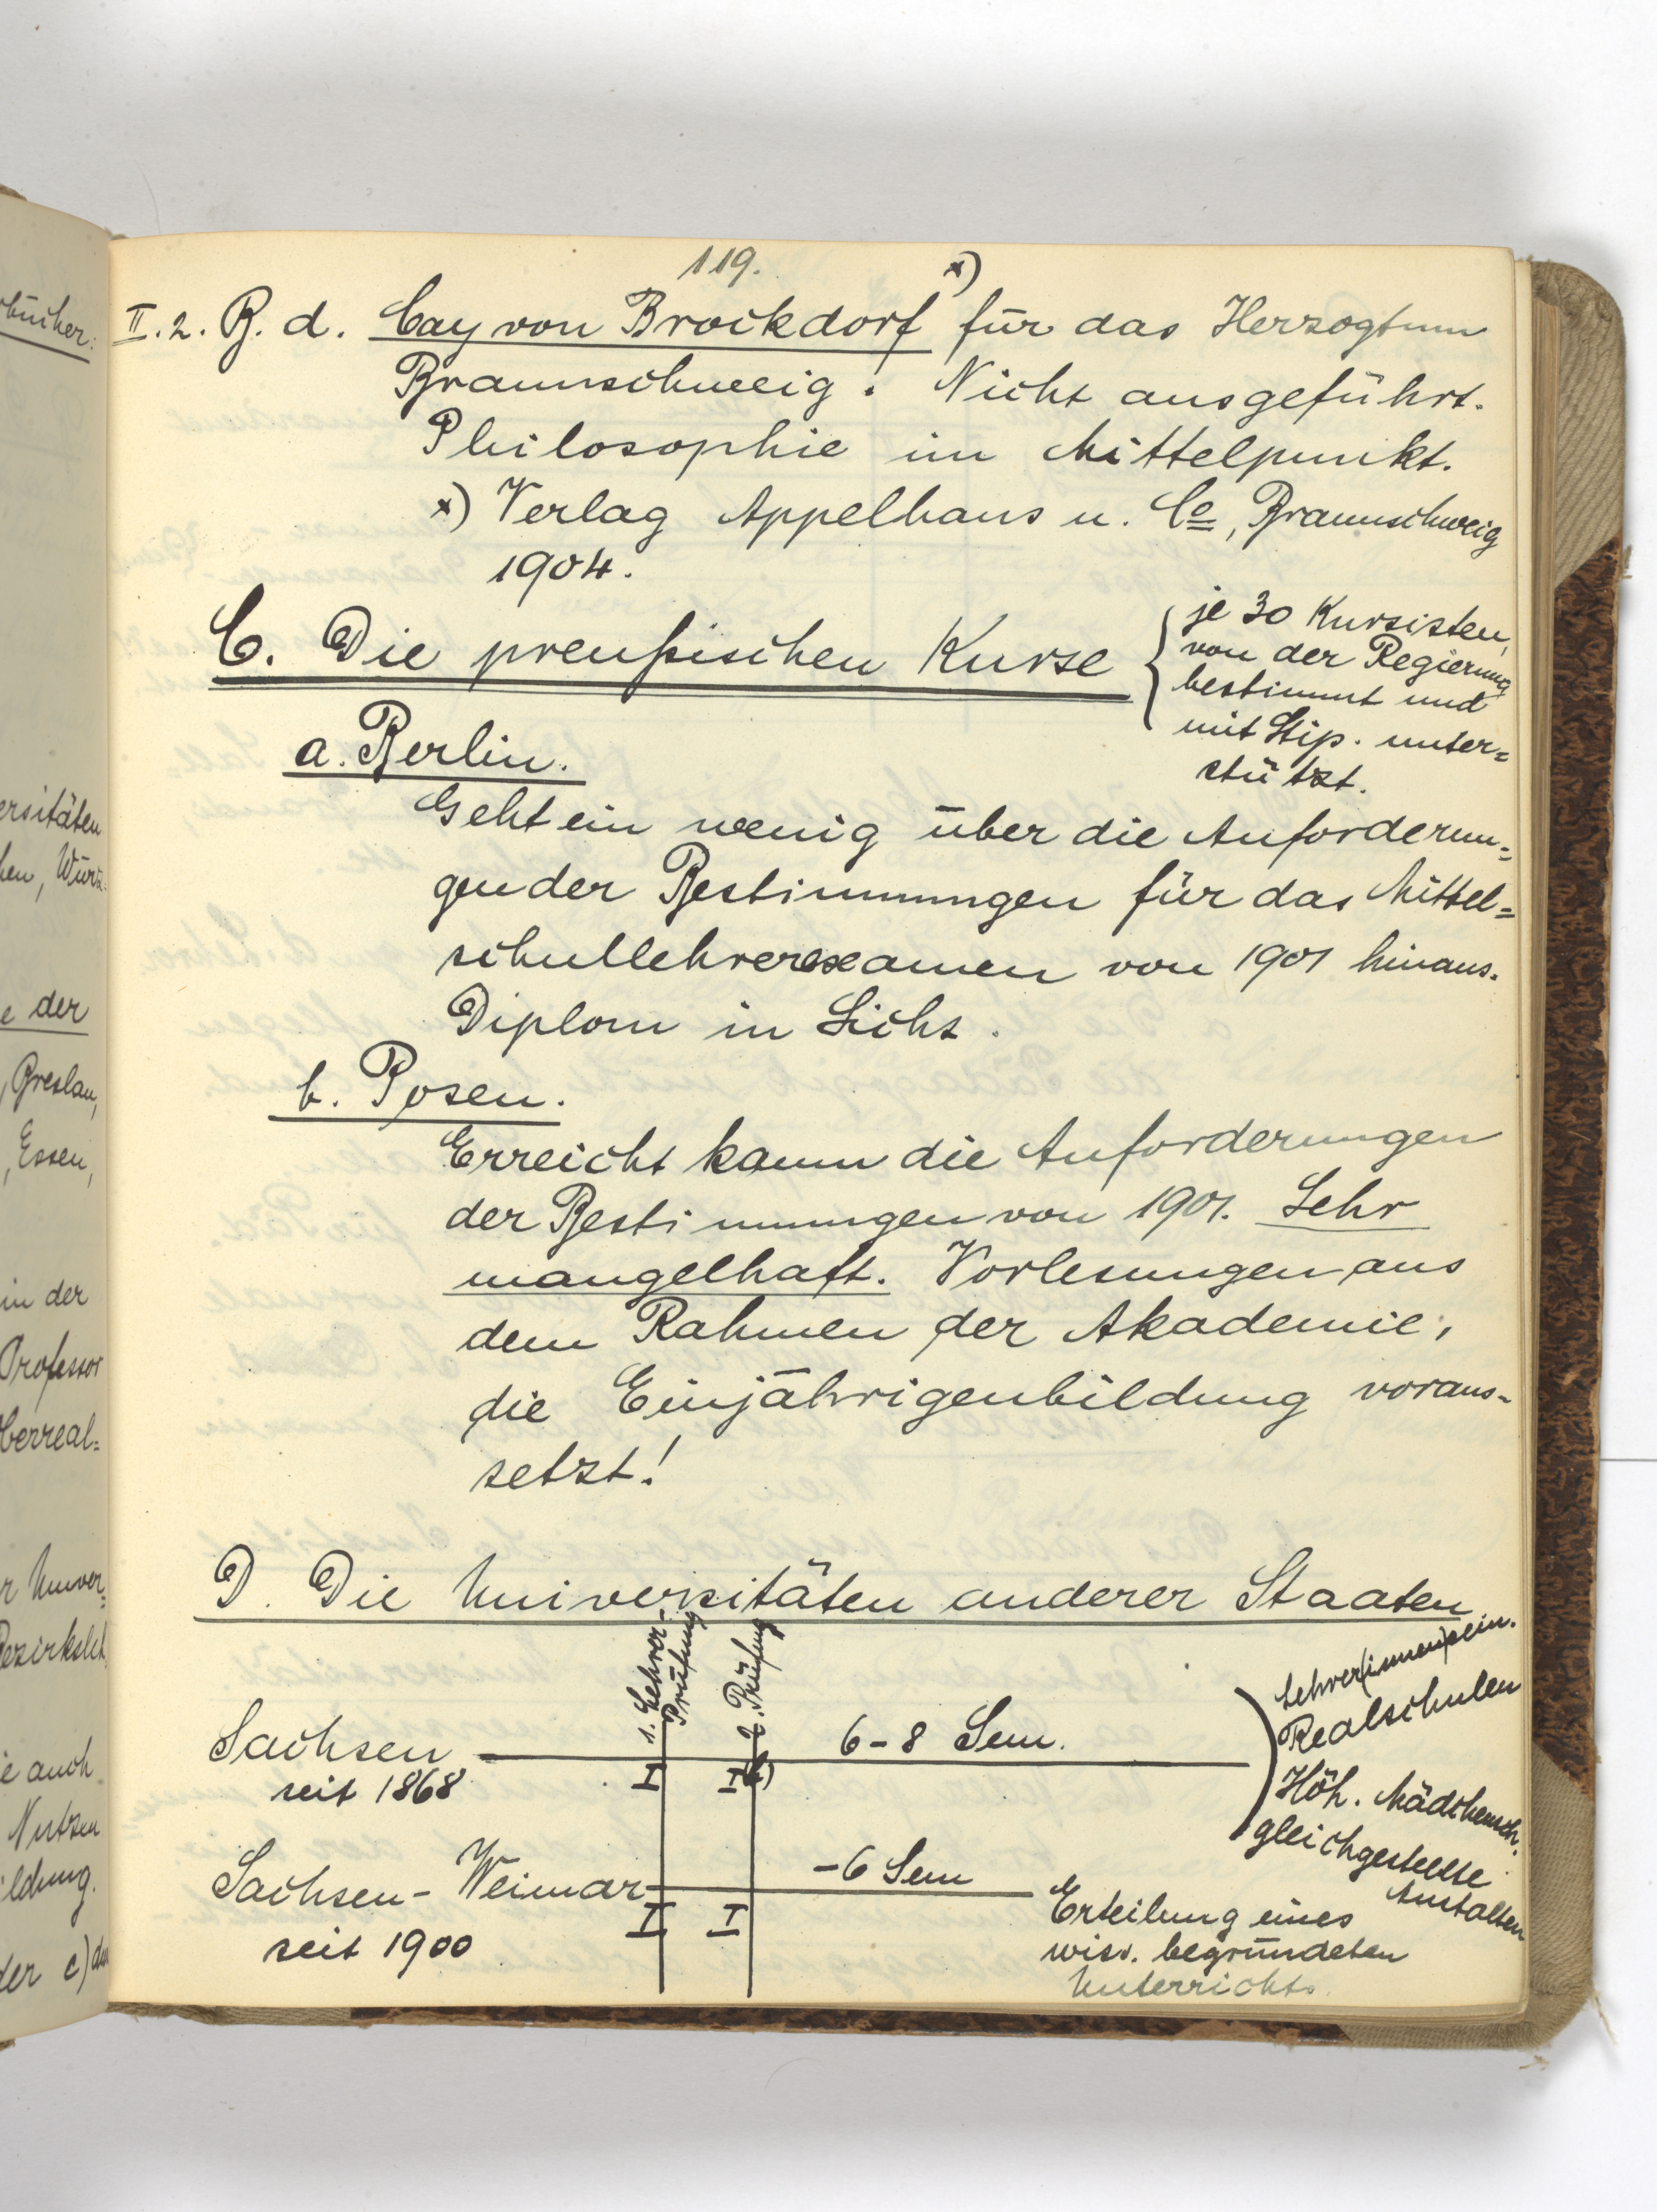 bücher:
ersitäten
hen, Würz-
e der
, Breslau,
, Essen,
in der
Professor
Oberreal=
r Univer=
Bezirksleh
ie auch
Nutzen
ildung.
der c) den
119.
II. 2. B. d. Cay von Brockdorf x) für das Herzogtum
Braunschweig. Nicht ausgeführt.
Philosophie im Mittelpunkt.
x) Verlag Appelhaus u. Co, Braunschweig
1904.
C. Die preußischen Kurse
je 30 Kursisten,
von der Regierung
bestimmt und
mit Stip. unter=
stützt.
a. Berlin.
Geht ein wenig über die Anforderun=
gen der Bestimmungen für das Mittel=
schullehrerexamen von 1901 hinaus.
Diplom in Sicht.
b. Posen.
Erreicht kaum die Anforderungen
der Bestimmungen von 1901. Sehr
mangelhaft. Vorlesungen aus
dem Rahmen der Akademie,
die Einjährigenbildung voraus-
setzt!
D. Die Universitäten anderer Staaten
1. Lehrer-
Prüfung
2. Prüfung
Sachsen
seit 1868
I
I
6-8 Sem.
Lehrer(innen)sem.
Realschulen
Höh. Mädchensch.
gleichgestellte
Anstalten
Sachsen-Weimar
seit 1900
I
I
-6 Sem
Erteilung eines
wiss. begründeten
Unterrichts.